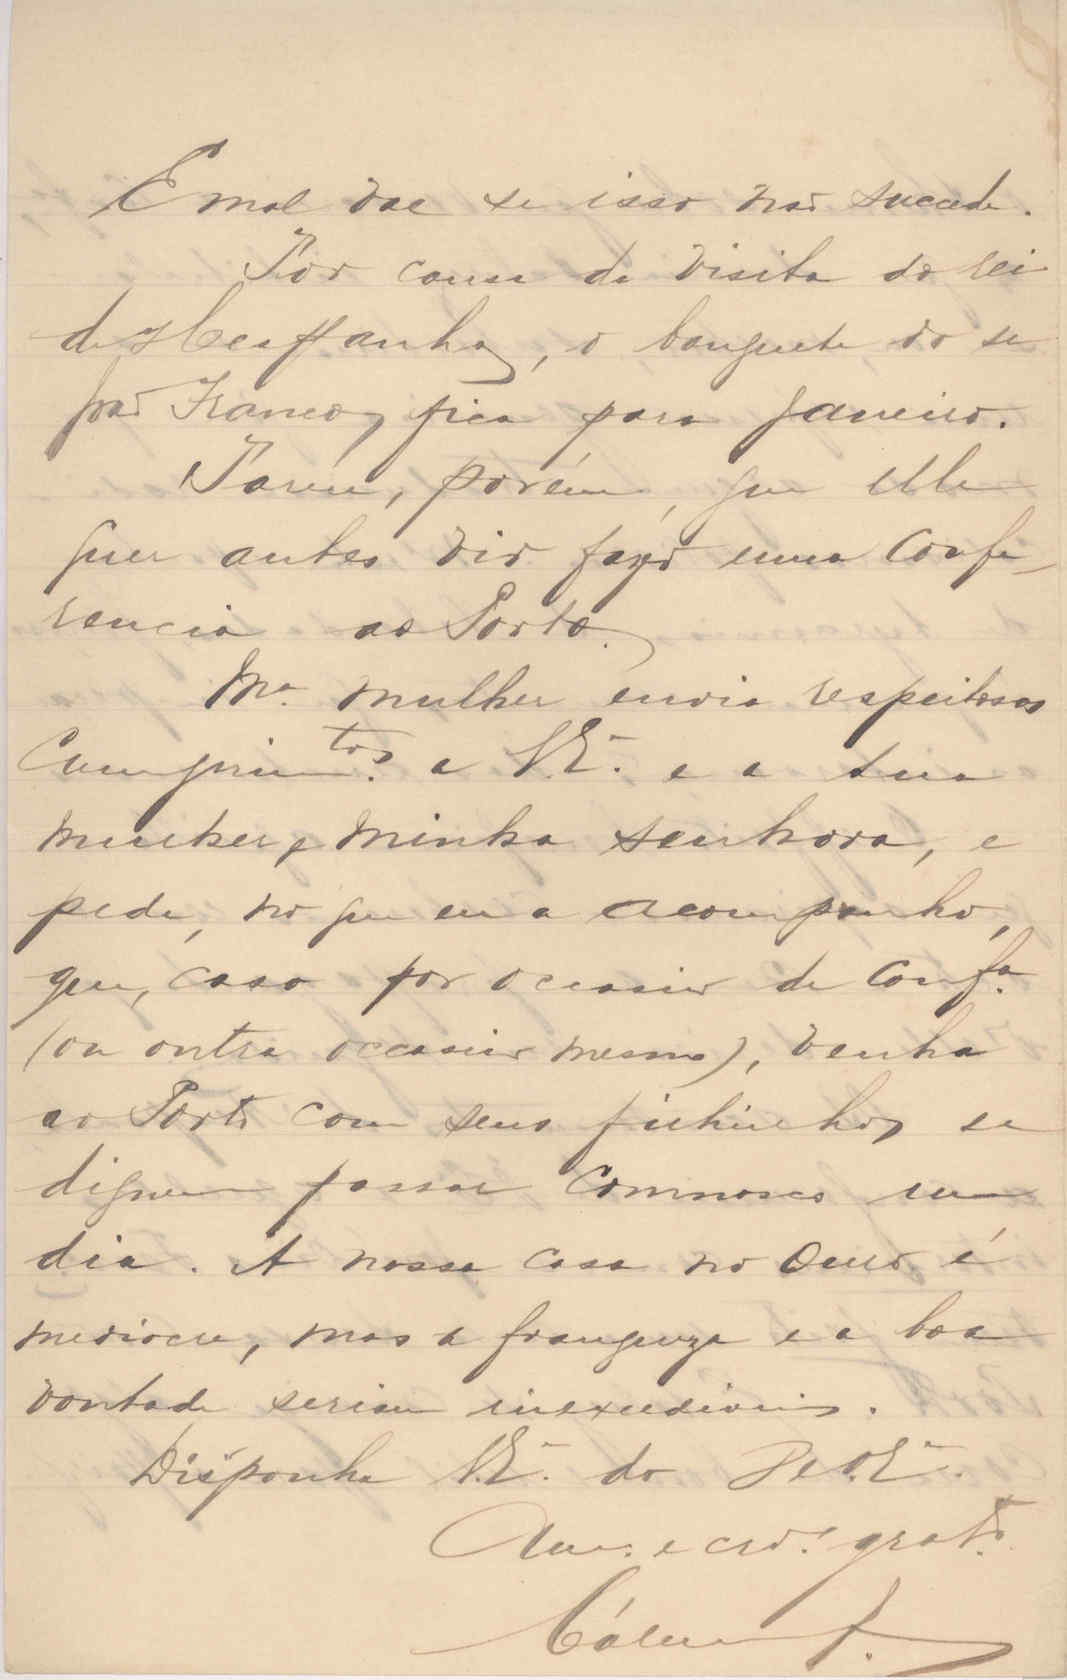 E mal vae se isso não succede.
Por causa da visita do rei
de Hespanha, o banquete do se
João Franco, fica para janeiro.
Parece, porém, que elle
quer antes vir fazer uma confe-
rencia ao Porto.
Mª mulher envia respeitosos
cumprimtos. a V.Eª. e a sua
mulher, minha senhora, e
pede, no que eu a acompanho,
que, caso por occasião da confª.
(ou outra occasião mesmo), venha
ao Porto com seus filhinhos se
dignem passar comnosco um
dia. A nossa casa no Ouro é
mediocre, mas a franqueza e a boa
vontade seriam inexcediveis.
Disponha V.Eª. do De V.Eª.
Amº. e crdº. gratº.